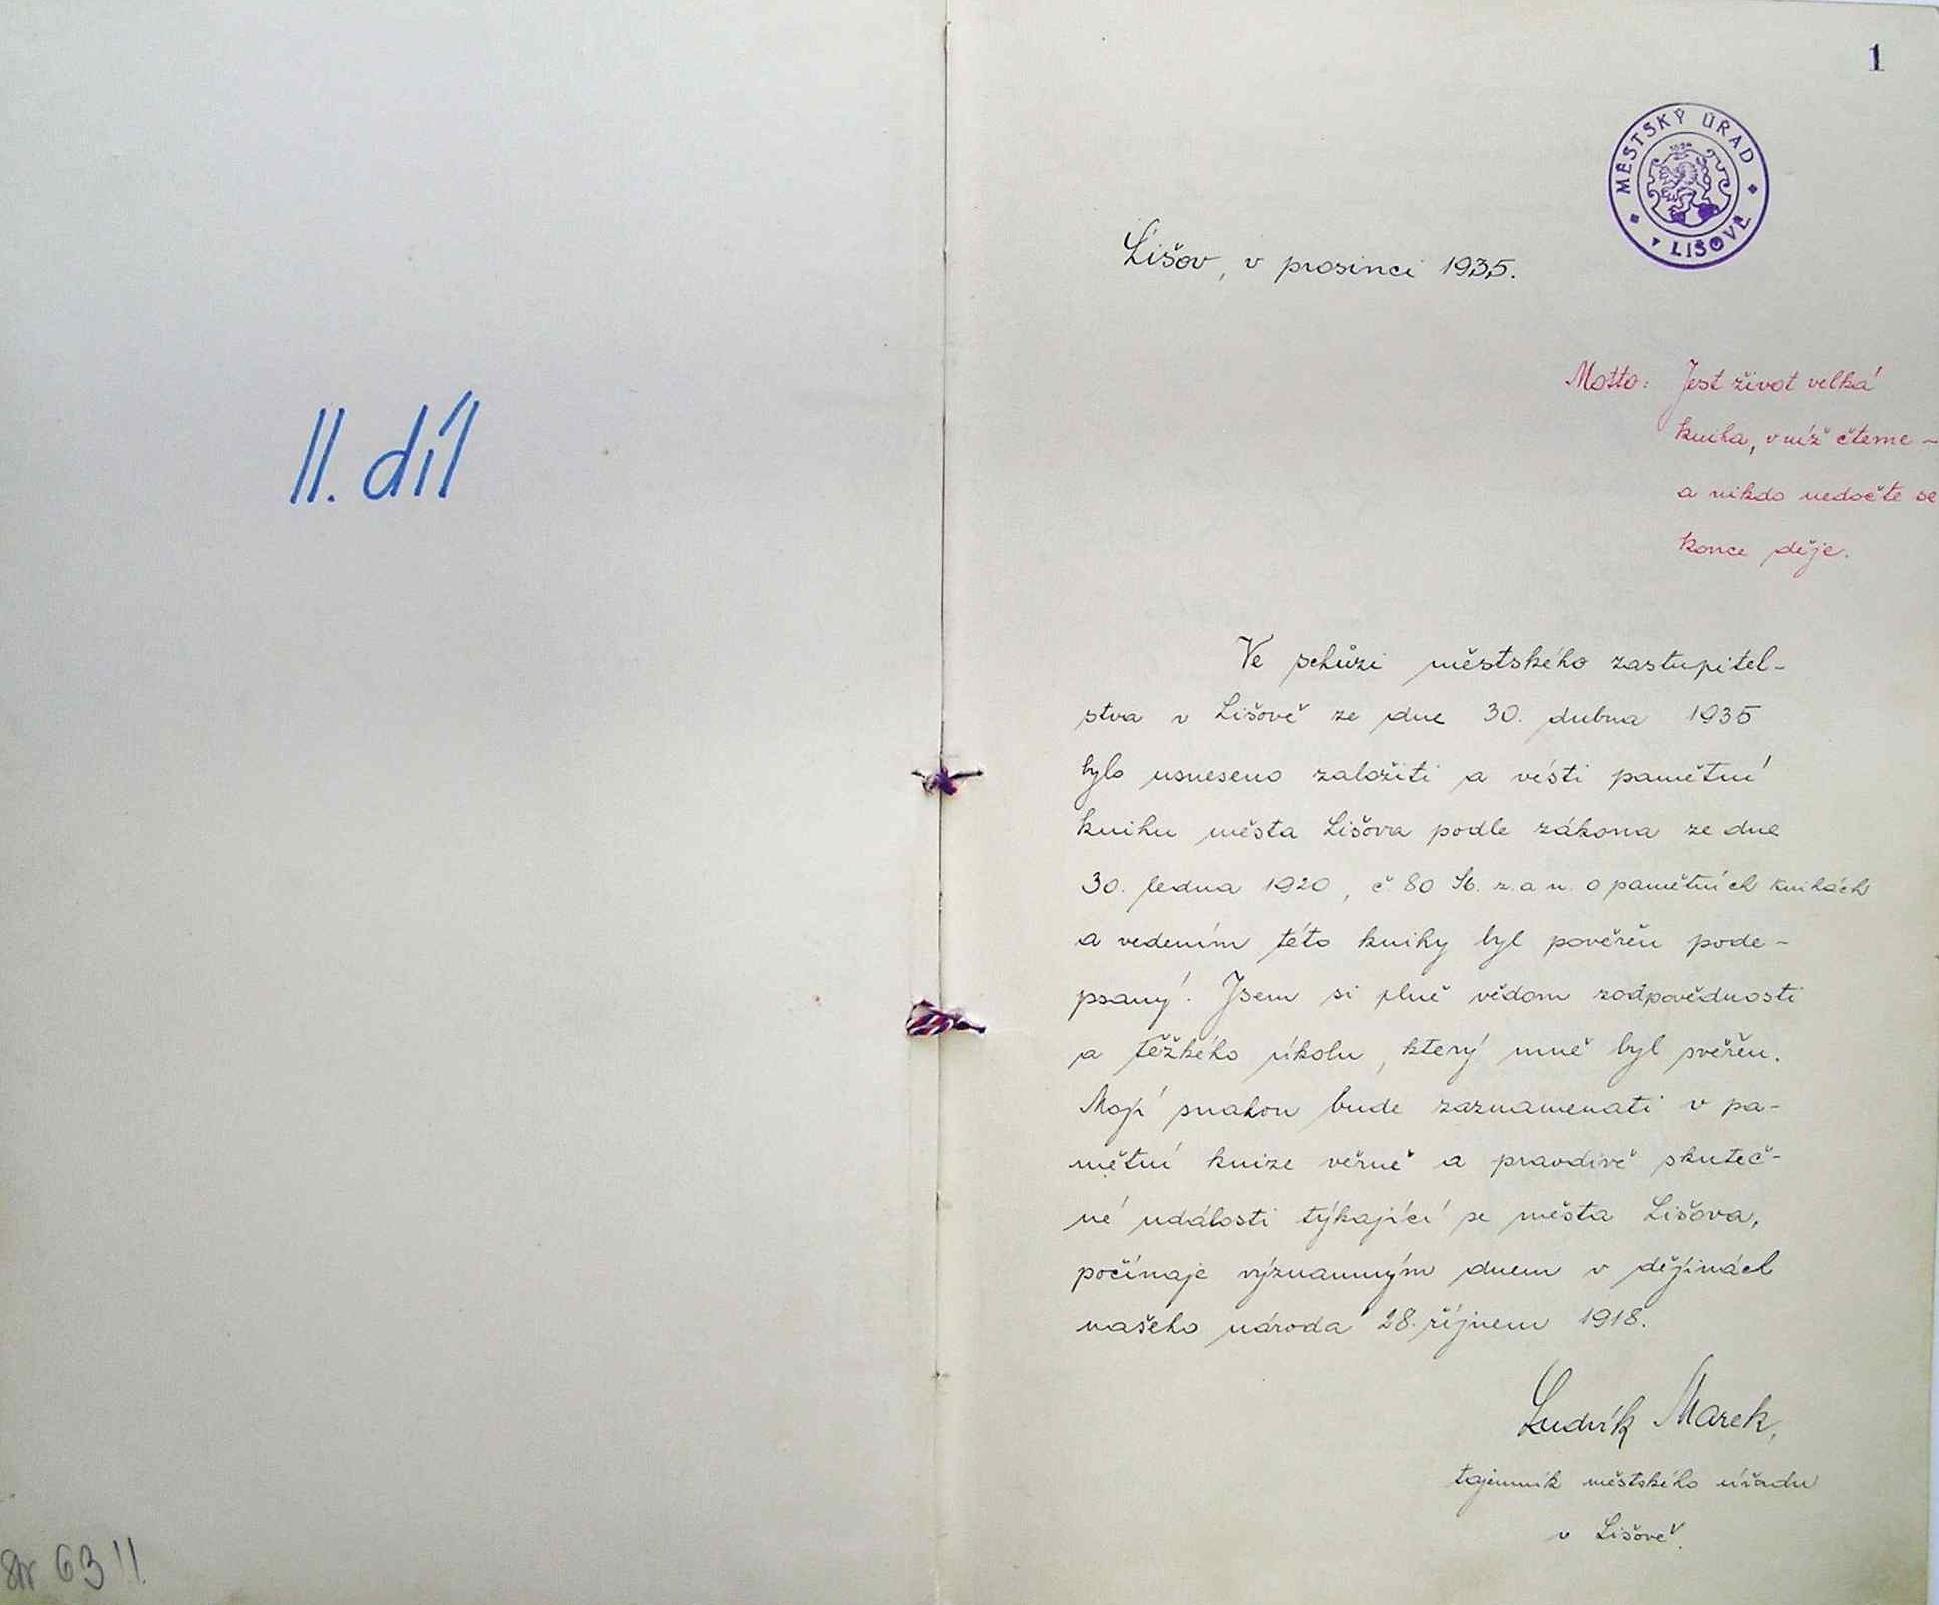 II. díl
str 63 !!
1
MĚSTSKÝ ÚŘAD
v LIŠOVĚ
Lišov, v prosinci 1935.
Motto: Jest život velká
kniha, v níž čteme –
a nikdo nedočte se
konce děje.
Ve schůzi městského zastupitel-
stva v Lišově ze dne 30. dubna 1935
bylo usneseno založiti a vésti pamětní
knihu města Lišova podle zákona ze dne
30. ledna 1920, č 80 Sb. z. a n. o pamětních knihách
a vedením této knihy byl pověřěn pode-
psaný. Jsem si plně vědom zodpovědnosti
a těžkého úkolu, který mně byl svěřen.
Mojí snahou bude zaznamenati v pa-
mětní knize věrně a pravdivě skuteč-
né události týkající se města Lišova,
počínaje významným dnem v dějinách
našeho národa 28. říjnem 1918.
Ludvík Marek,
tajemník městského úřadu
v Lišově.